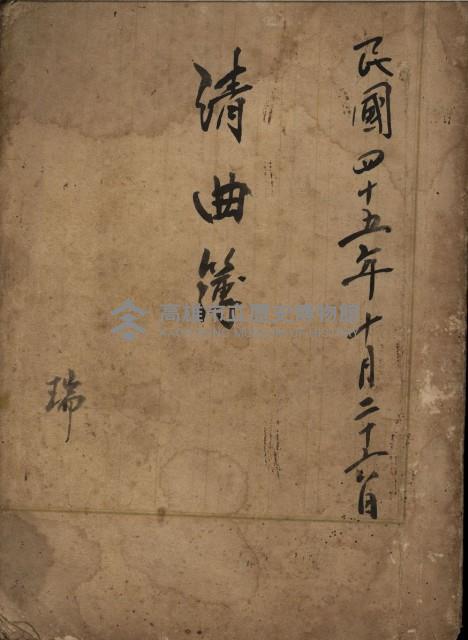 民國四十五年十月二十六日
清曲簿
瑞
高雄市立歷史博物館
KAOHSIUNG MUSEUM OF HISTORY